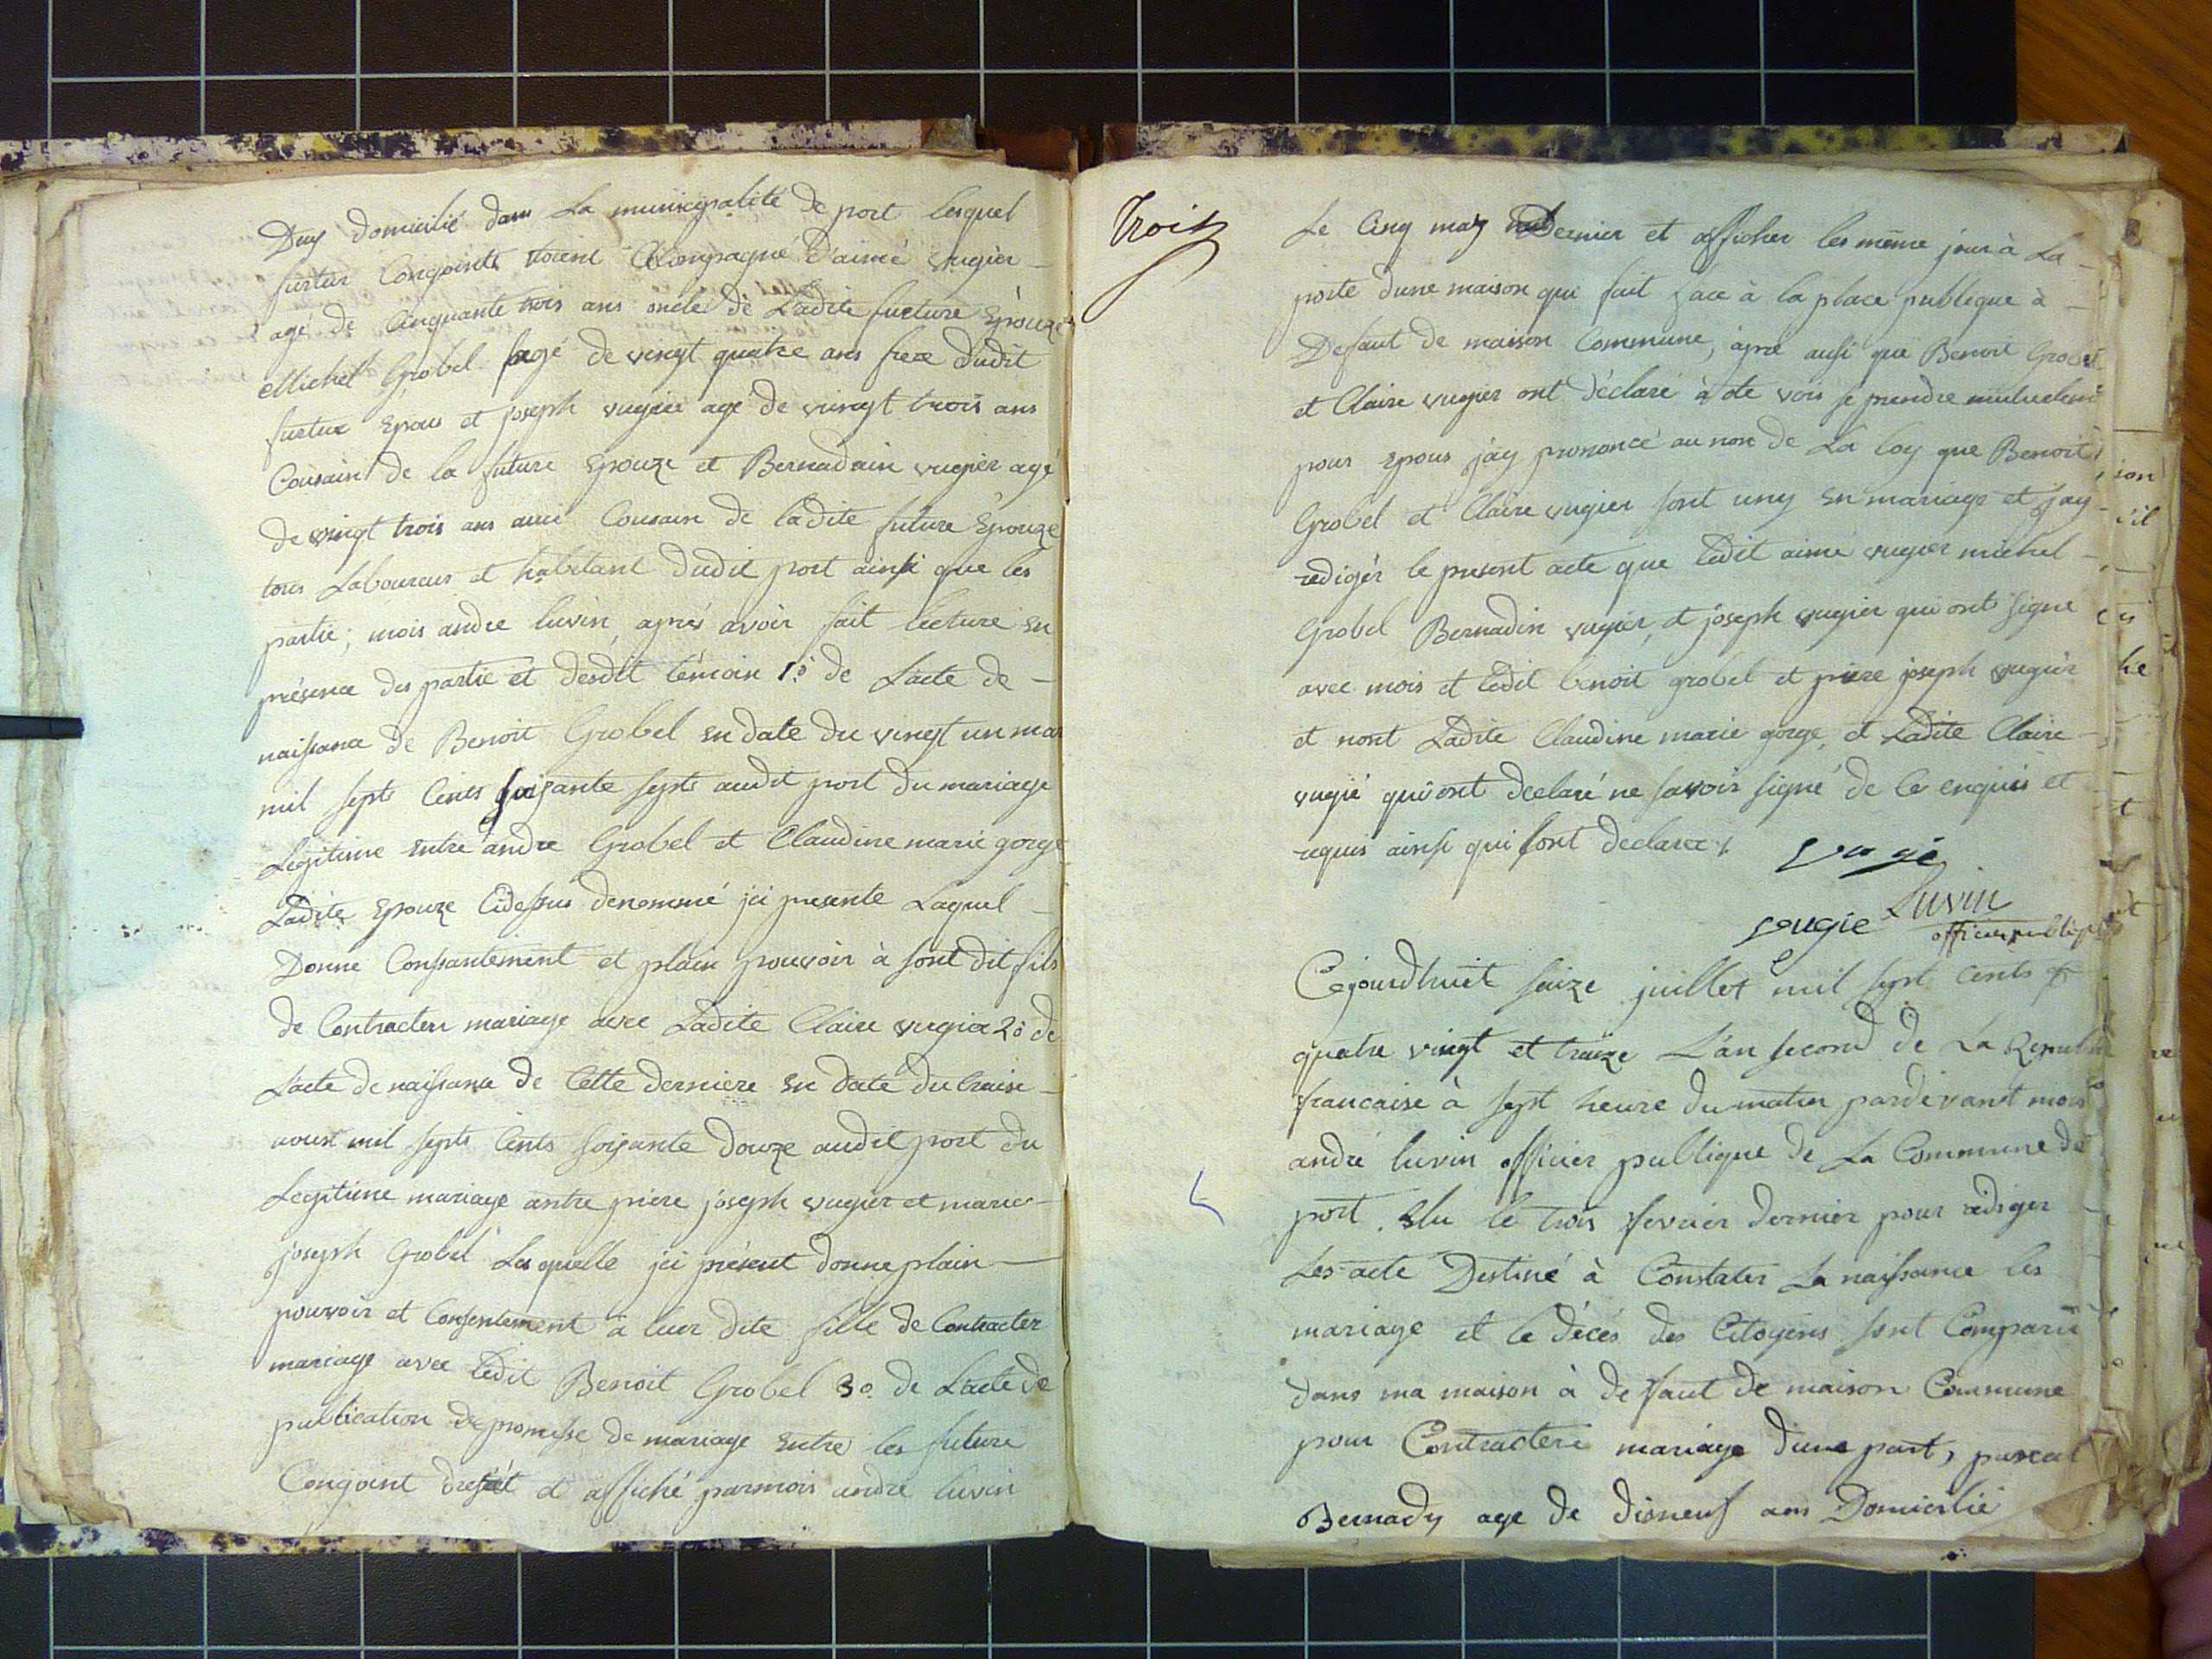 Duy domicilié dans La municipalité de port lesquel
furtur Conjoints étoient Accompagné d'aimé vugier
agé de Cinquante trois ans oncle de Ladite furture Epouze
Michel Grobel agé de vingt quatre ans frere dudit
furtur Epous et joseph vugier agé de vingt trois ans
Cousain de la future Epouze et Bernadain vugier agé
de vingt trois ans aussi Cousain de ladite future Epouze
tous Laboureurs et habitant dudit port ainsi que les
partie; mois andre luvin après avoir fait lecture en
présence des partie et desdit témoin 1o de L'acte de
naissance de Benoit Grobel en date du vingt un mar
mil septs Cents soisante septs audit port du mariage
Legitime entre andre Grobel et Claudine marie gorge
Ladite Epouze Cidessus denommé ici presente Laquel
Donne Consantement et plain pouvoir à sont dit fils
de Contracter mariage avec Ladite Claire vugier 2o de
L'acte de naissance de Cette derniere en date du traise
aoust mil septs Cents soisante douze audit port du
Legitime mariage antre piere joseph vugier et marie
joseph Grobel Lesquelle ici présent donne plain
pouvoir et Consentement à leur dite fille de Contracter
mariage avec Ledit Benoit Grobel 3o de L'acte de
publication de promesse de mariage entre les future
Conjoint dressét et affiché parmois andré luvin
Trois
Le Cinq may Dernier et afficher les même jour à La
porte d'une maison qui fait face à la place publique à
Defaut de maison Commune, apré ausi que Benoit Grobel
et Claire vugier ont déclaré à ote vois se prendre mutuelem
pour epous jay prononcé au non de La loy que Benoit
Grobel et Claire vugier sont uny en mariage et jay
redigér le present acte que Ledit aimé vugier michel
Grobel Bernadin vugier, et joseph vugier qui ont signé
avec mois et Ledit benoit grobel et piere joseph vugier
et nont Ladite Claudine marie gorge, et Ladite Claire
vugié qui ont declaré ne savoir signé de Ce enquis et
requis ainsi qui sont declarer
vugié
vougie Luvin
officier publique
Cejourdhuit saize juillet mil sept cents
quatre vingt et traize L'an second de La Republi
francaise à sept heure du matin pardevant mois
andré luvin officier publique de La Commune de
port elu le trois fevrier dernier pour rédiger
Les acte Destiné à Constater La naissance les
mariage et le décés des Citoyens sont Comparu
dans ma maison à defaut de maison Commune
pour Contracter mariage d'une part, pascal
Bernady age de disneuf ans Domicilié